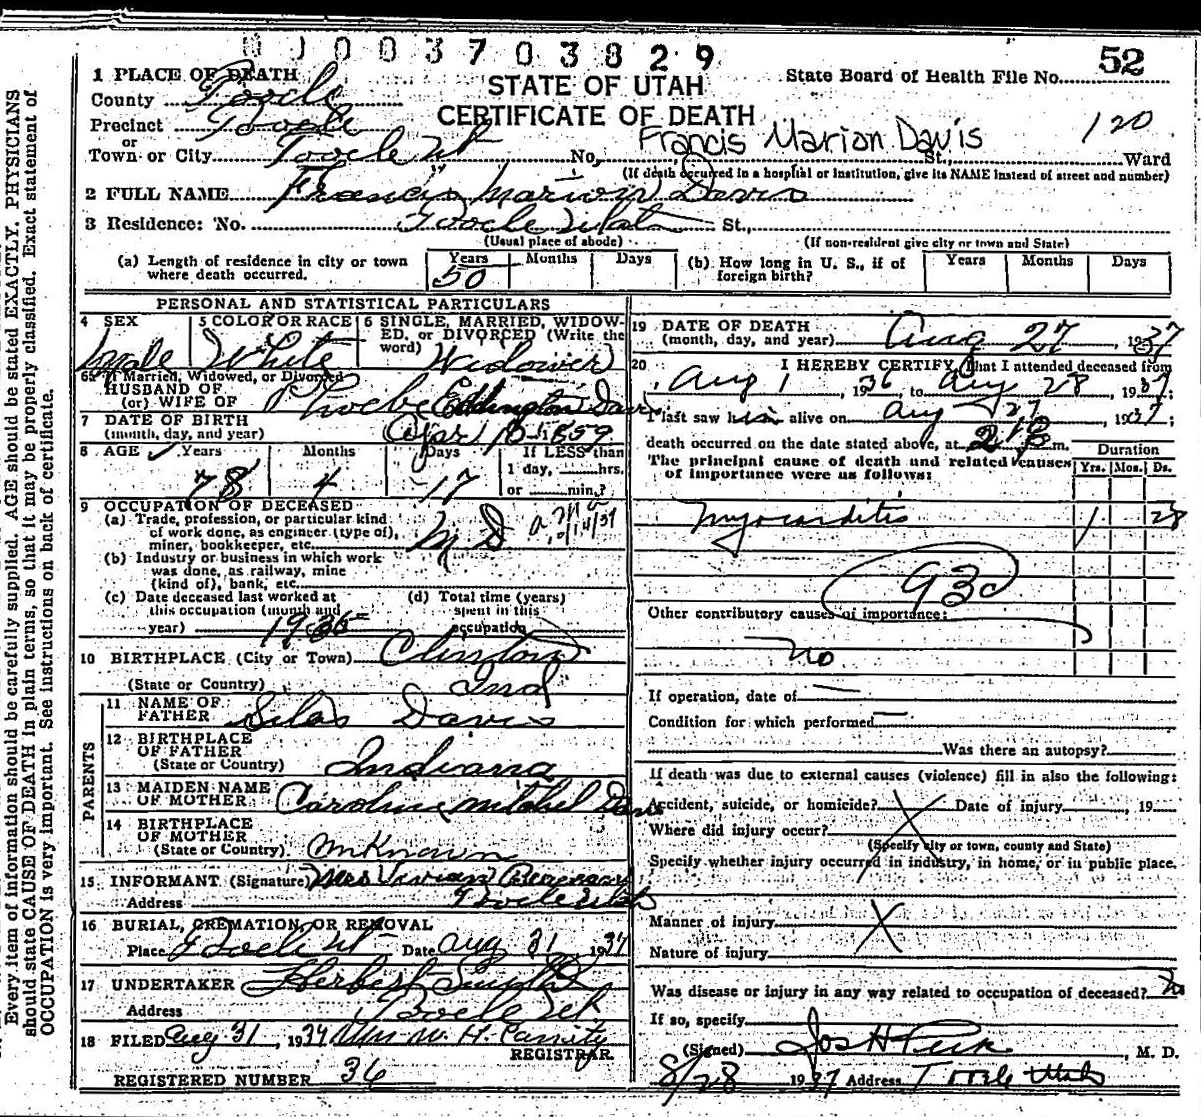 0 J 0 0 3 7 0 3 8 2 9
52
1 PLACE OF DEATH
STATE OF UTAH
State Board of Health File No.
County Tooele
CERTIFICATE OF DEATH
Precinct Tooele
Francis Marion Davis
120
or
Town or City Tooele Ut No. St., Ward
(If death occurred in a hospital or institution, give its NAME instead of street and number)
2 FULL NAME Francis Marion Davis
3 Residence: No. Tooele Utah St.,
(Usual place of abode)
(If non-resident give city or town and State)
(a) Length of residence in city or town where death occurred. Years 50 Months Days
(b) How long in U. S., if of foreign birth? Years Months Days
PERSONAL AND STATISTICAL PARTICULARS
4 SEX male
5 COLOR OR RACE White
6 SINGLE, MARRIED, WIDOWED, or DIVORCED (Write the word) Widower
6a If Married, Widowed, or Divorced
HUSBAND OF
(or) WIFE OF Phoebe Eddington Davis
7 DATE OF BIRTH
(month, day, and year) Apr 10 1859
8 AGE Years 78 Months 4 Days 17 If LESS than 1 day, hrs. or min.?
9 OCCUPATION OF DECEASED
(a) Trade, profession, or particular kind of work done, as engineer (type of), miner, bookkeeper, etc. M D
(b) Industry or business in which work was done, as railway, mine (kind of), bank, etc.
(c) Date deceased last worked at this occupation (month and year) 1935
(d) Total time (years) spent in this occupation
10 BIRTHPLACE (City or Town) Clinton
(State or Country) Ind
PARENTS
11 NAME OF FATHER Silas Davis
12 BIRTHPLACE OF FATHER
(State or Country) Indiana
13 MAIDEN NAME OF MOTHER Caroline Mitchel Davis
14 BIRTHPLACE OF MOTHER
(State or Country) Unknown
15 INFORMANT (Signature) Mrs Vivian
Address Tooele Utah
16 BURIAL, CREMATION, OR REMOVAL
Place Tooele Ut Date Aug 31 1937
17 UNDERTAKER Herbert
Address Tooele Ut
18 FILED Aug. 31, 1937 Mrs W. H.
REGISTRAR
REGISTERED NUMBER 36
19 DATE OF DEATH
(month, day, and year) Aug 27, 1937
20 I HEREBY CERTIFY, That I attended deceased from
Aug 1, 1936, to Aug 28, 1937;
I last saw him alive on Aug 27, 1937;
death occurred on the date stated above, at m.
The principal cause of death and related causes of importance were as follows:
Duration
Yrs. Mos. Ds.
Myocarditis 1 28
93c
Other contributory causes of importance:
no
If operation, date of
Condition for which performed
Was there an autopsy?
If death was due to external causes (violence) fill in also the following:
Accident, suicide, or homicide? X Date of injury, 19
Where did injury occur?
(Specify city or town, county and State)
Specify whether injury occurred in industry, in home, or in public place.
Manner of injury X
Nature of injury
Was disease or injury in any way related to occupation of deceased? no
If so, specify
(Signed) Jos H Peck, M. D.
8/28 1937 Address Tooele Utah
Every item of information should be carefully supplied. AGE should be stated EXACTLY. PHYSICIANS
should state CAUSE OF DEATH in plain terms, so that it may be properly classified. Exact statement of
OCCUPATION is very important. See instructions on back of certificate.